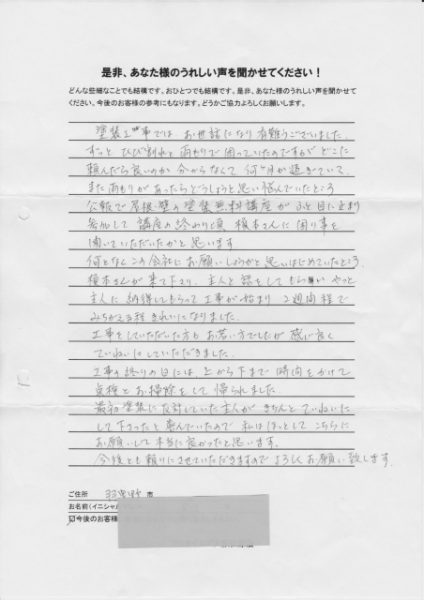 是非、あなた様のうれしい声を聞かせてください！
どんな些細なことでも結構です。おひとつでも結構です。是非、あなた様のうれしい声を聞かせて
ください。今後のお客様の参考にもなります。どうかご協力よろしくお願いします。
塗装工事では、お世話になり有難うございました。
ずっと ひび割れと 雨もりで 困っていたのですが どこに
頼んだら良いのか 分からなくて 何ヶ月か過ぎていて、
また雨もりがあったらどうしようと思い悩んでいたところ
公報で屋根・壁の塗装無料講座が ふと目に止まり
参加して 講座の終わり頃 榎木さんに 困り事を
聞いていただいたかと思います
何となくこの会社にお願いしようかと思いはじめていたところ、
榎木さんが来て下さり、主人と話をしてもらい やっと
主人に納得してもらって工事が始まり 2週間程で
みちがえる程 きれいになりました。
工事をしていただいた方も お若い方でしたが 感じ良く
ていねいにしていただきました。
工事の終りの日には 上から下まで 時間をかけて
点検とお掃除をして 帰られました
最初塗装に反対していた主人が きちんと ていねいに
して下さったと喜んでいたので 私はほっとして こちらに
お願いして 本当に良かったと思います。
今後とも頼りにさせていただきますので よろしくお願い致します。
ご住所 羽曳野 市
お名前(イニシャル
☑今後のお客様